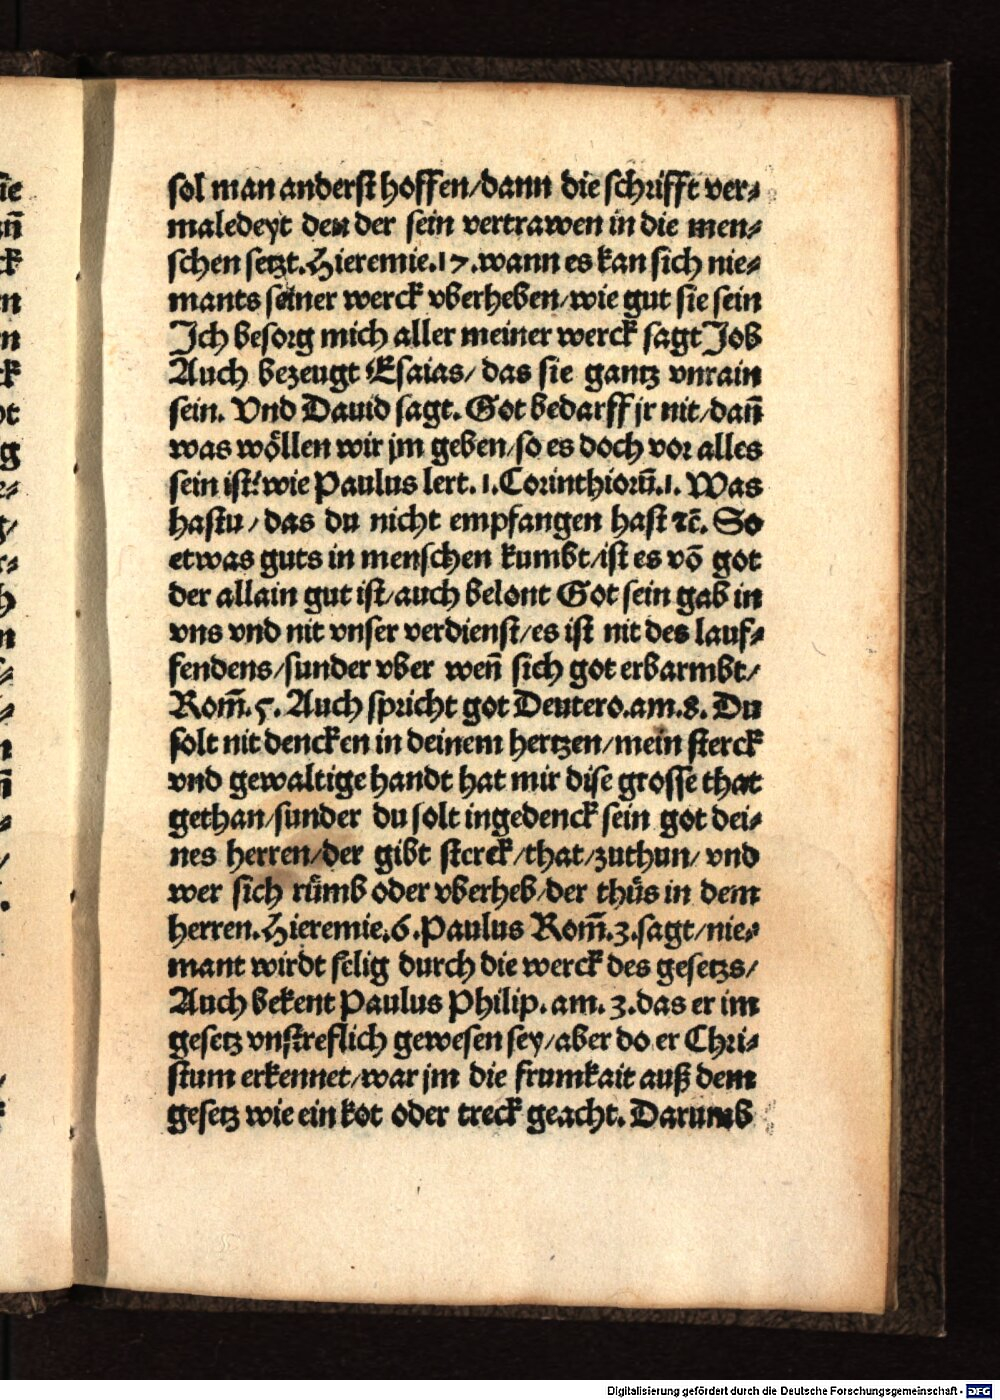 sol man anderst hoffen/dann die schrifft ver⸗
maledeyt den der sein vertrawen in die men⸗
schen setzt.Hieremie.17.wann es kan sich nie⸗
mants seiner werck vberheben/wie gut sie sein
Ich besorg mich aller meiner werck sagt Job
Auch bezeugt Esaias/das sie gantz vnrain
sein. Vnd Dauid sagt. Got bedarff jr nit/dañ
was wöllen wir jm geben/so es doch vor alles
sein ist? wie Paulus lert.1.Corinthiorū.1. Was
hastu/das du nicht empfangen hast ꝛc̄. So
etwas guts in menschen kumbt/ist es vō got
der allain gut ist/auch belont Got sein gab in
vns vnd nit vnser verdienst/es ist nit des lauf⸗
fendens/sunder vber weñ sich got erbarmbt/
Rom̄.5. Auch spricht got Deutero.am.8. Du
solt nit dencken in deinem hertzen/mein sterck
vnd gewaltige handt hat mir dise grosse that
gethan/sunder du solt ingedenck sein got dei⸗
nes herren/der gibt sterck/that/zuthun/vnd
wer sich rümb oder vberheb/der thüs in dem
herren.Hieremie.6.Paulus Rom̄.3.sagt/nie⸗
mant wirdt selig durch die werck des gesetzs/
Auch bekent Paulus Philip.am.3.das er im
gesetz vnstreflich gewesen sey/aber do er Chri⸗
stum erkennet/war jm die frumkait auß dem
gesetz wie ein kot oder treck geacht. Darumb
Digitalisierung gefördert durch die Deutsche Forschungsgemeinschaft - DFG